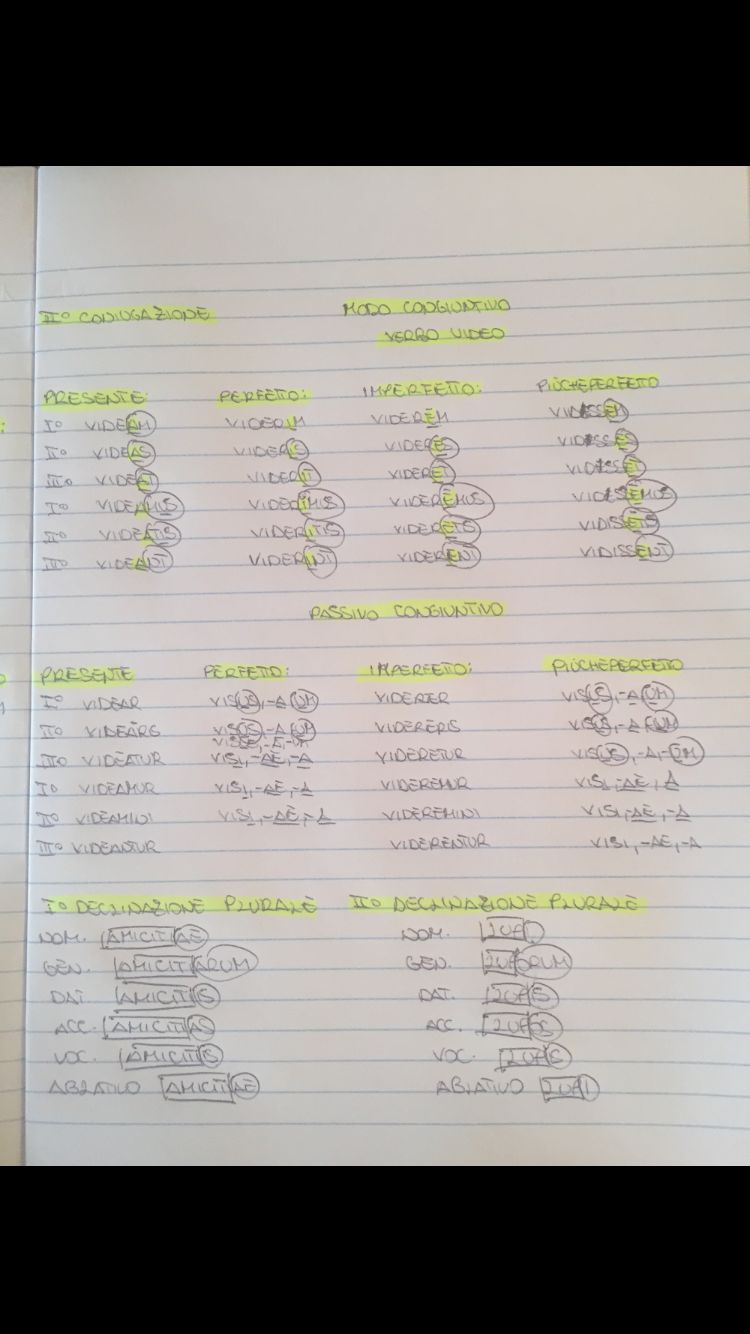 IIº CONIUGAZIONE MODO CONGIUNTIVO
VERBO VIDEO
PRESENTE: PERFETTO: IMPERFETTO: PIÙCHEPERFETTO
Iº VIDEAM VIDERIM VIDERĒM VIDISSEM
IIº VIDEAS VIDERIS VIDERĒS VIDISSES
IIIº VIDEAT VIDERIT VIDERET VIDISSET
Iº VIDEAMUS VIDERIMUS VIDERĒMUS VIDISSEMUS
IIº VIDEATIS VIDERITIS VIDERETIS VIDISSETIS
IIIº VIDEANT VIDERINT VIDERENT VIDISSENT
PASSIVO CONGIUNTIVO
PRESENTE PERFETTO: IMPERFETTO: PIÙCHEPERFETTO
Iº VIDEAR VIS(US), -A (UM) VIDERER VIS(US), -A (UM)
IIº VIS(US), -A (UM) VIDERERIS VIS(US), -A (UM)
IIIº VIDEATUR VISI, -AE, -A VIDERETUR VIS(US), -A, -(UM)
Iº VIDEAMUR VISI, -AE, -A VIDEREMUR VISI, -AE, A
IIº VIDEAMINI VISI, -AE, -A VIDEREMINI VISI, -AE, -A
IIIº VIDEANTUR VIDERENTUR VISI, -AE, -A
Iº DECLINAZIONE PLURALE IIº DECLINAZIONE PLURALE
NOM. AMICITIAE NOM. LUPI
GEN. AMICITIARUM GEN. LUPORUM
DAT. AMICITIS DAT. LUPIS
ACC. AMICITIAS ACC. LUPOS
VOC. AMICITIS VOC. LUPIS
ABLATIVO AMICITIAE ABLATIVO LUPI